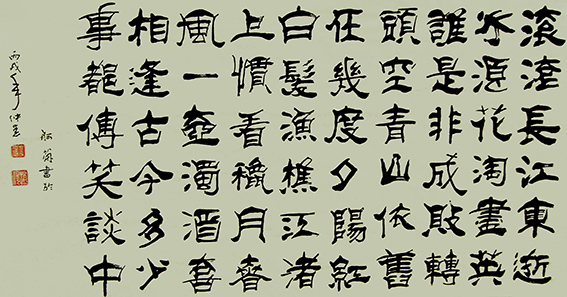 滚滚長江東逝
水浪花淘盡英
雄是非成敗轉
頭空青山依舊
在幾度夕陽紅
白髮漁樵江渚
上慣看穐月春
風一壺濁酒喜
相逢古今多少
事都傅笑談中
丙戌年仲
翁書於